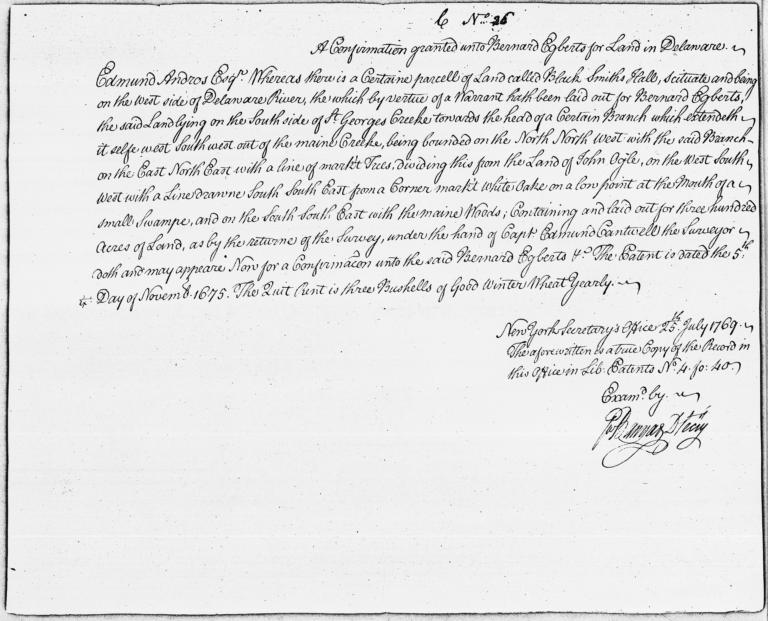 C Nº 26
A Confirmation granted unto Bernard Egberts for Land in Delaware
Edmund Andros Esqr. Whereas there is a Certaine parcell of Land called Black Smiths Hall, scituate and being
on the West side of Delaware River, the which by vertue of a Warrant hath been laid out for Bernard Egberts,
the said Land lying on the South side of St. Georges Creeke towards the head of a Certain Branch which extendeth
it selfe west Southwest out of the maine Creeke, being bounded on the North North West with the said Branch
on the East North East with a line of markt Trees, dividing this from the Land of John Ogle, on the West South
West with a Line drawne South South East from a Corner markt White Oake on a low point at the Mouth of a
small Swampe, and on the South South East with the maine Woods; Containing and laid out for three hundred
Acres of Land, as by the returne of the Survey, under the hand of Capt. Edmund Cantwell the Surveyor
doth and may appeare Now for a Confirmacon unto the said Bernard Egberts &ca. The Patent is dated the 5th.
Day of Novembr. 1675. The Quit Rent is three Bushells of Good Winter Wheat Yearly.
New York Secretary's Office 25th. July 1769.
The aforewritten is a true Copy of the Record in
this Office in Lib. Patents No. 4. fo: 40.
Examd. by.
Banyar D Secry